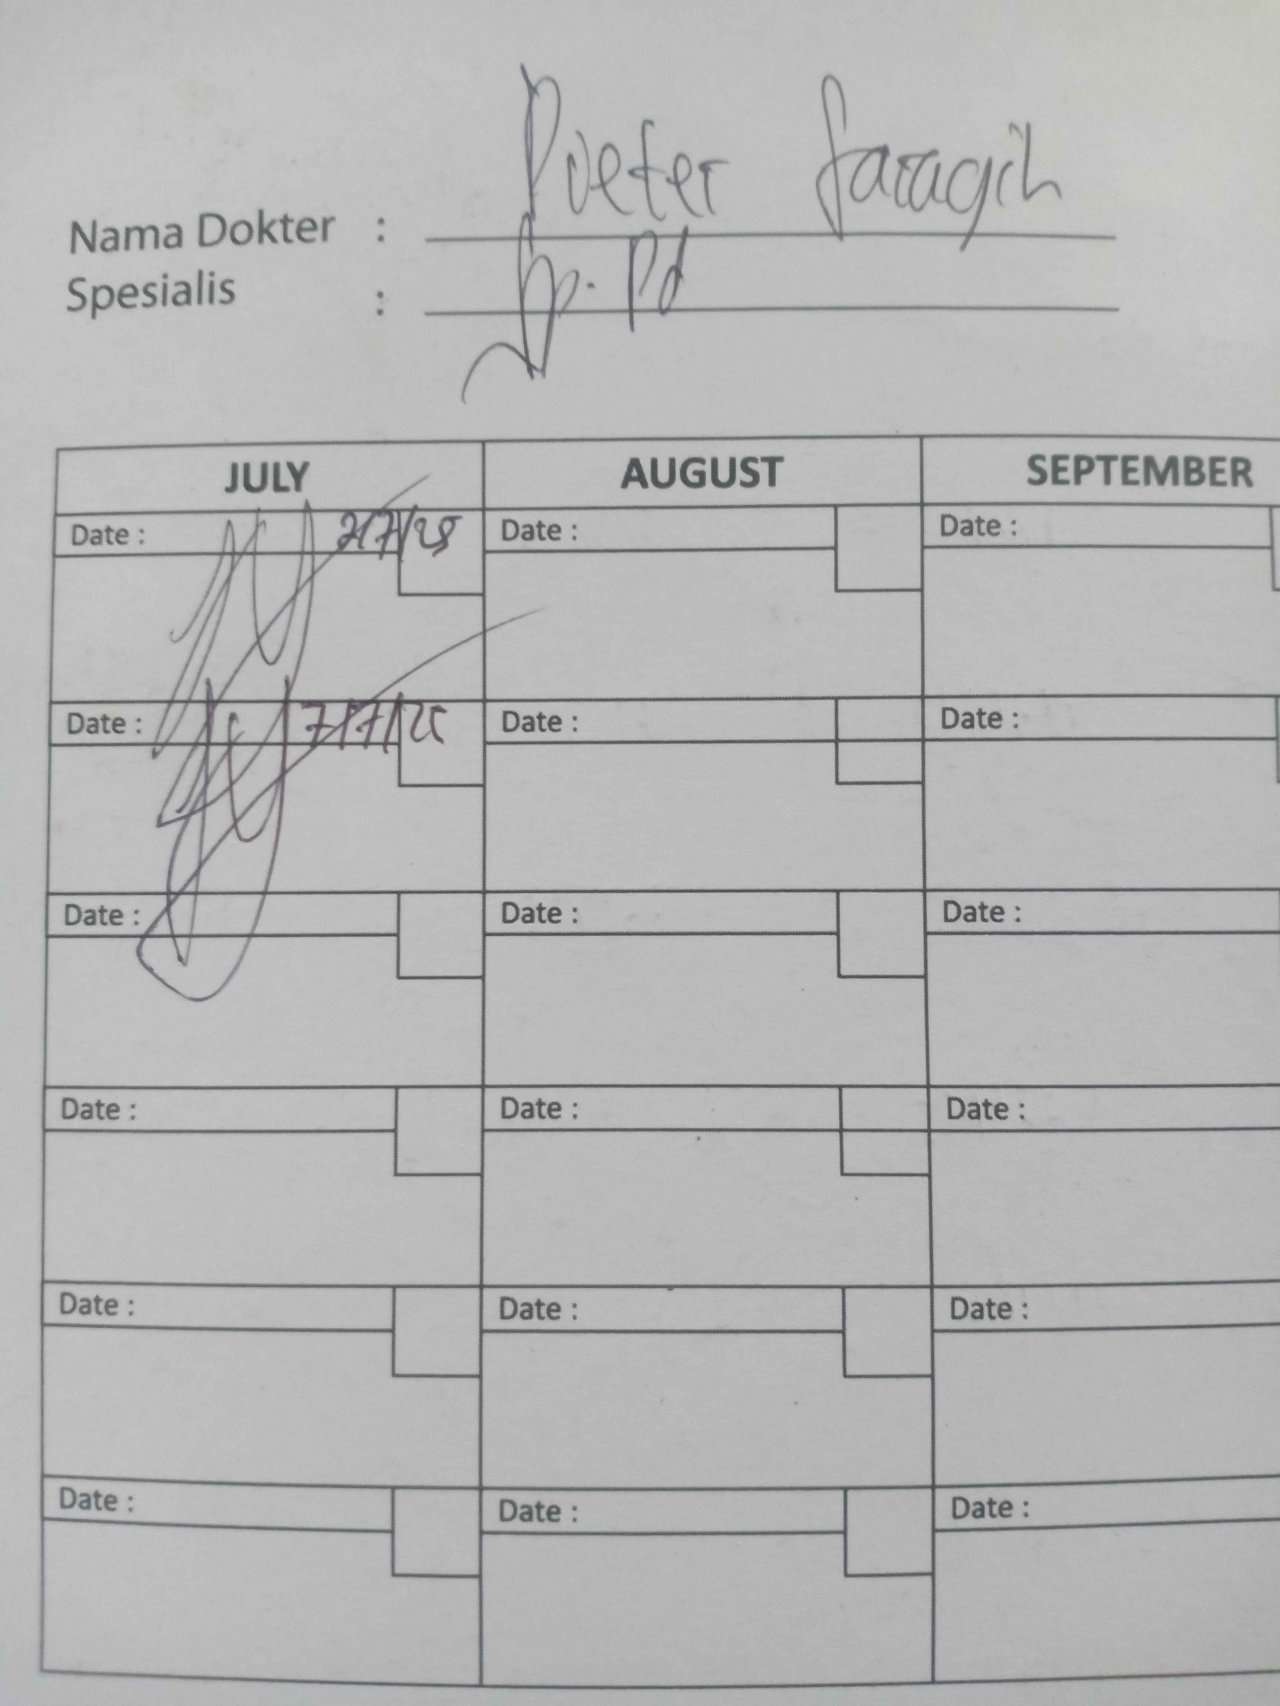 Nama Dokter : Poeter Saragih
Spesialis : Sp. Pd
JULY AUGUST SEPTEMBER
Date : 2/7/25 Date : Date :
Date : 7/7/25 Date : Date :
Date : Date : Date :
Date : Date : Date :
Date : Date : Date :
Date : Date : Date :